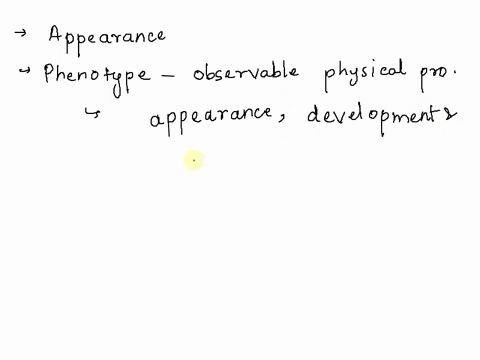 → Appearance
→ Phenotype – observable physical pro.
↳ appearance, developments